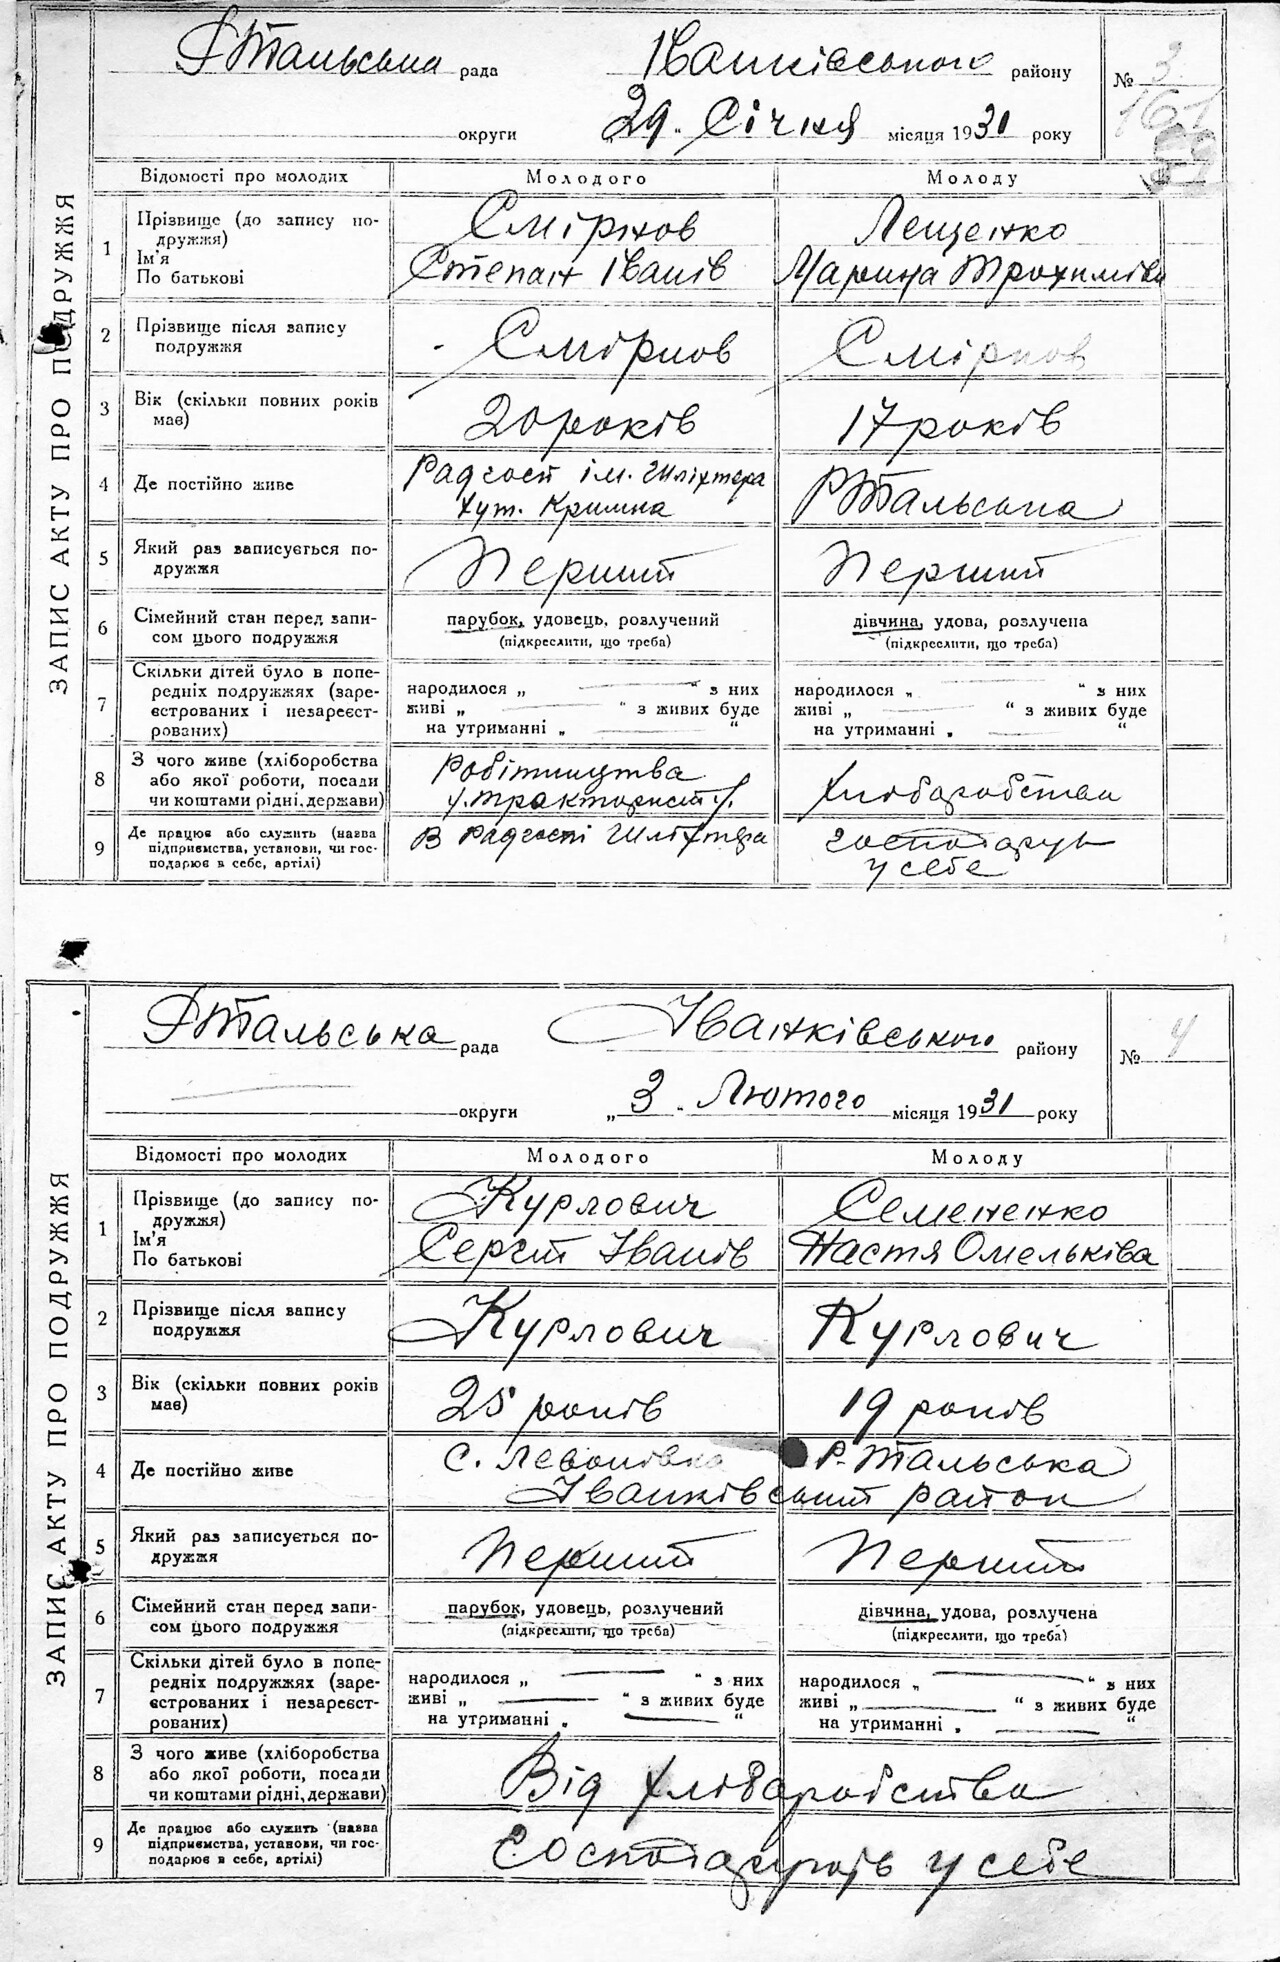 ЗАПИС АКТУ ПРО ПОДРУЖЖЯ
РТальська рада Іванківського району № 3
161
округи „29“ Січня місяця 1931 року
Відомості про молодих Молодого Молоду
1 Прізвище (до запису подружжя) Смірнов Лещенко
Ім'я
По батькові Степан Іванів Марина Трохимівна
2 Прізвище після запису
подружжя Смірнов Смірнов
3 Вік (скільки повних років
має) 20 років 17 років
4 Де постійно живе Радгосп ім. Шліхтера РТальська
хут. Кримка
5 Який раз записується по-
дружжя Перший Перший
6 Сімейний стан перед запи- парубок, удовець, розлучений дівчина, удова, розлучена
сом цього подружжя (підкреслити, що треба) (підкреслити, що треба)
7 Скільки дітей було в попе-
редніх подружжях (заре- народилося „ — “ з них народилося „ — “ з них
єстрованих і незареєст- живі „ — “ з живих буде живі „ — “ з живих буде
рованих) на утриманні „ — “ на утриманні „ — “
8 З чого живе (хліборобства Робітництва Хлібаробства
або якої роботи, посади
чи коштами рідні, держави) /.тракторист/.
9 Де працює або служить (назва В Радгоспі Шліхтера господарує
підприємства, установи, чи гос- у себе
подарює в себе, артілі)
ЗАПИС АКТУ ПРО ПОДРУЖЖЯ
РТальська рада Іванківського району № 4
округи „3“ Лютого місяця 1931 року
Відомості про молодих Молодого Молоду
1 Прізвище (до запису по- Курлович Семененко
дружжя)
Ім'я Сергій Іванів Настя Омельківа
По батькові
2 Прізвище після запису
подружжя Курлович Курлович
3 Вік (скільки повних років
має) 25 років 19 років
4 Де постійно живе С. Леонівка Р-Тальська
Іванківський район
5 Який раз записується по-
дружжя Перший Перший
6 Сімейний стан перед запи- парубок, удовець, розлучений дівчина, удова, розлучена
сом цього подружжя (підкреслити, що треба) (підкреслити, що треба)
7 Скільки дітей було в попе-
редніх подружжях (заре- народилося „ — “ з них народилося „ — “ з них
єстрованих і незареєст- живі „ — “ з живих буде живі „ — “ з живих буде
рованих) на утриманні „ — “ на утриманні „ — “
8 З чого живе (хліборобства
або якої роботи, посади Від хлібаробства
чи коштами рідні, держави)
9 Де працює або служить (назва
підприємства, установи, чи гос- Господарують у себе
подарює в себе, артілі)